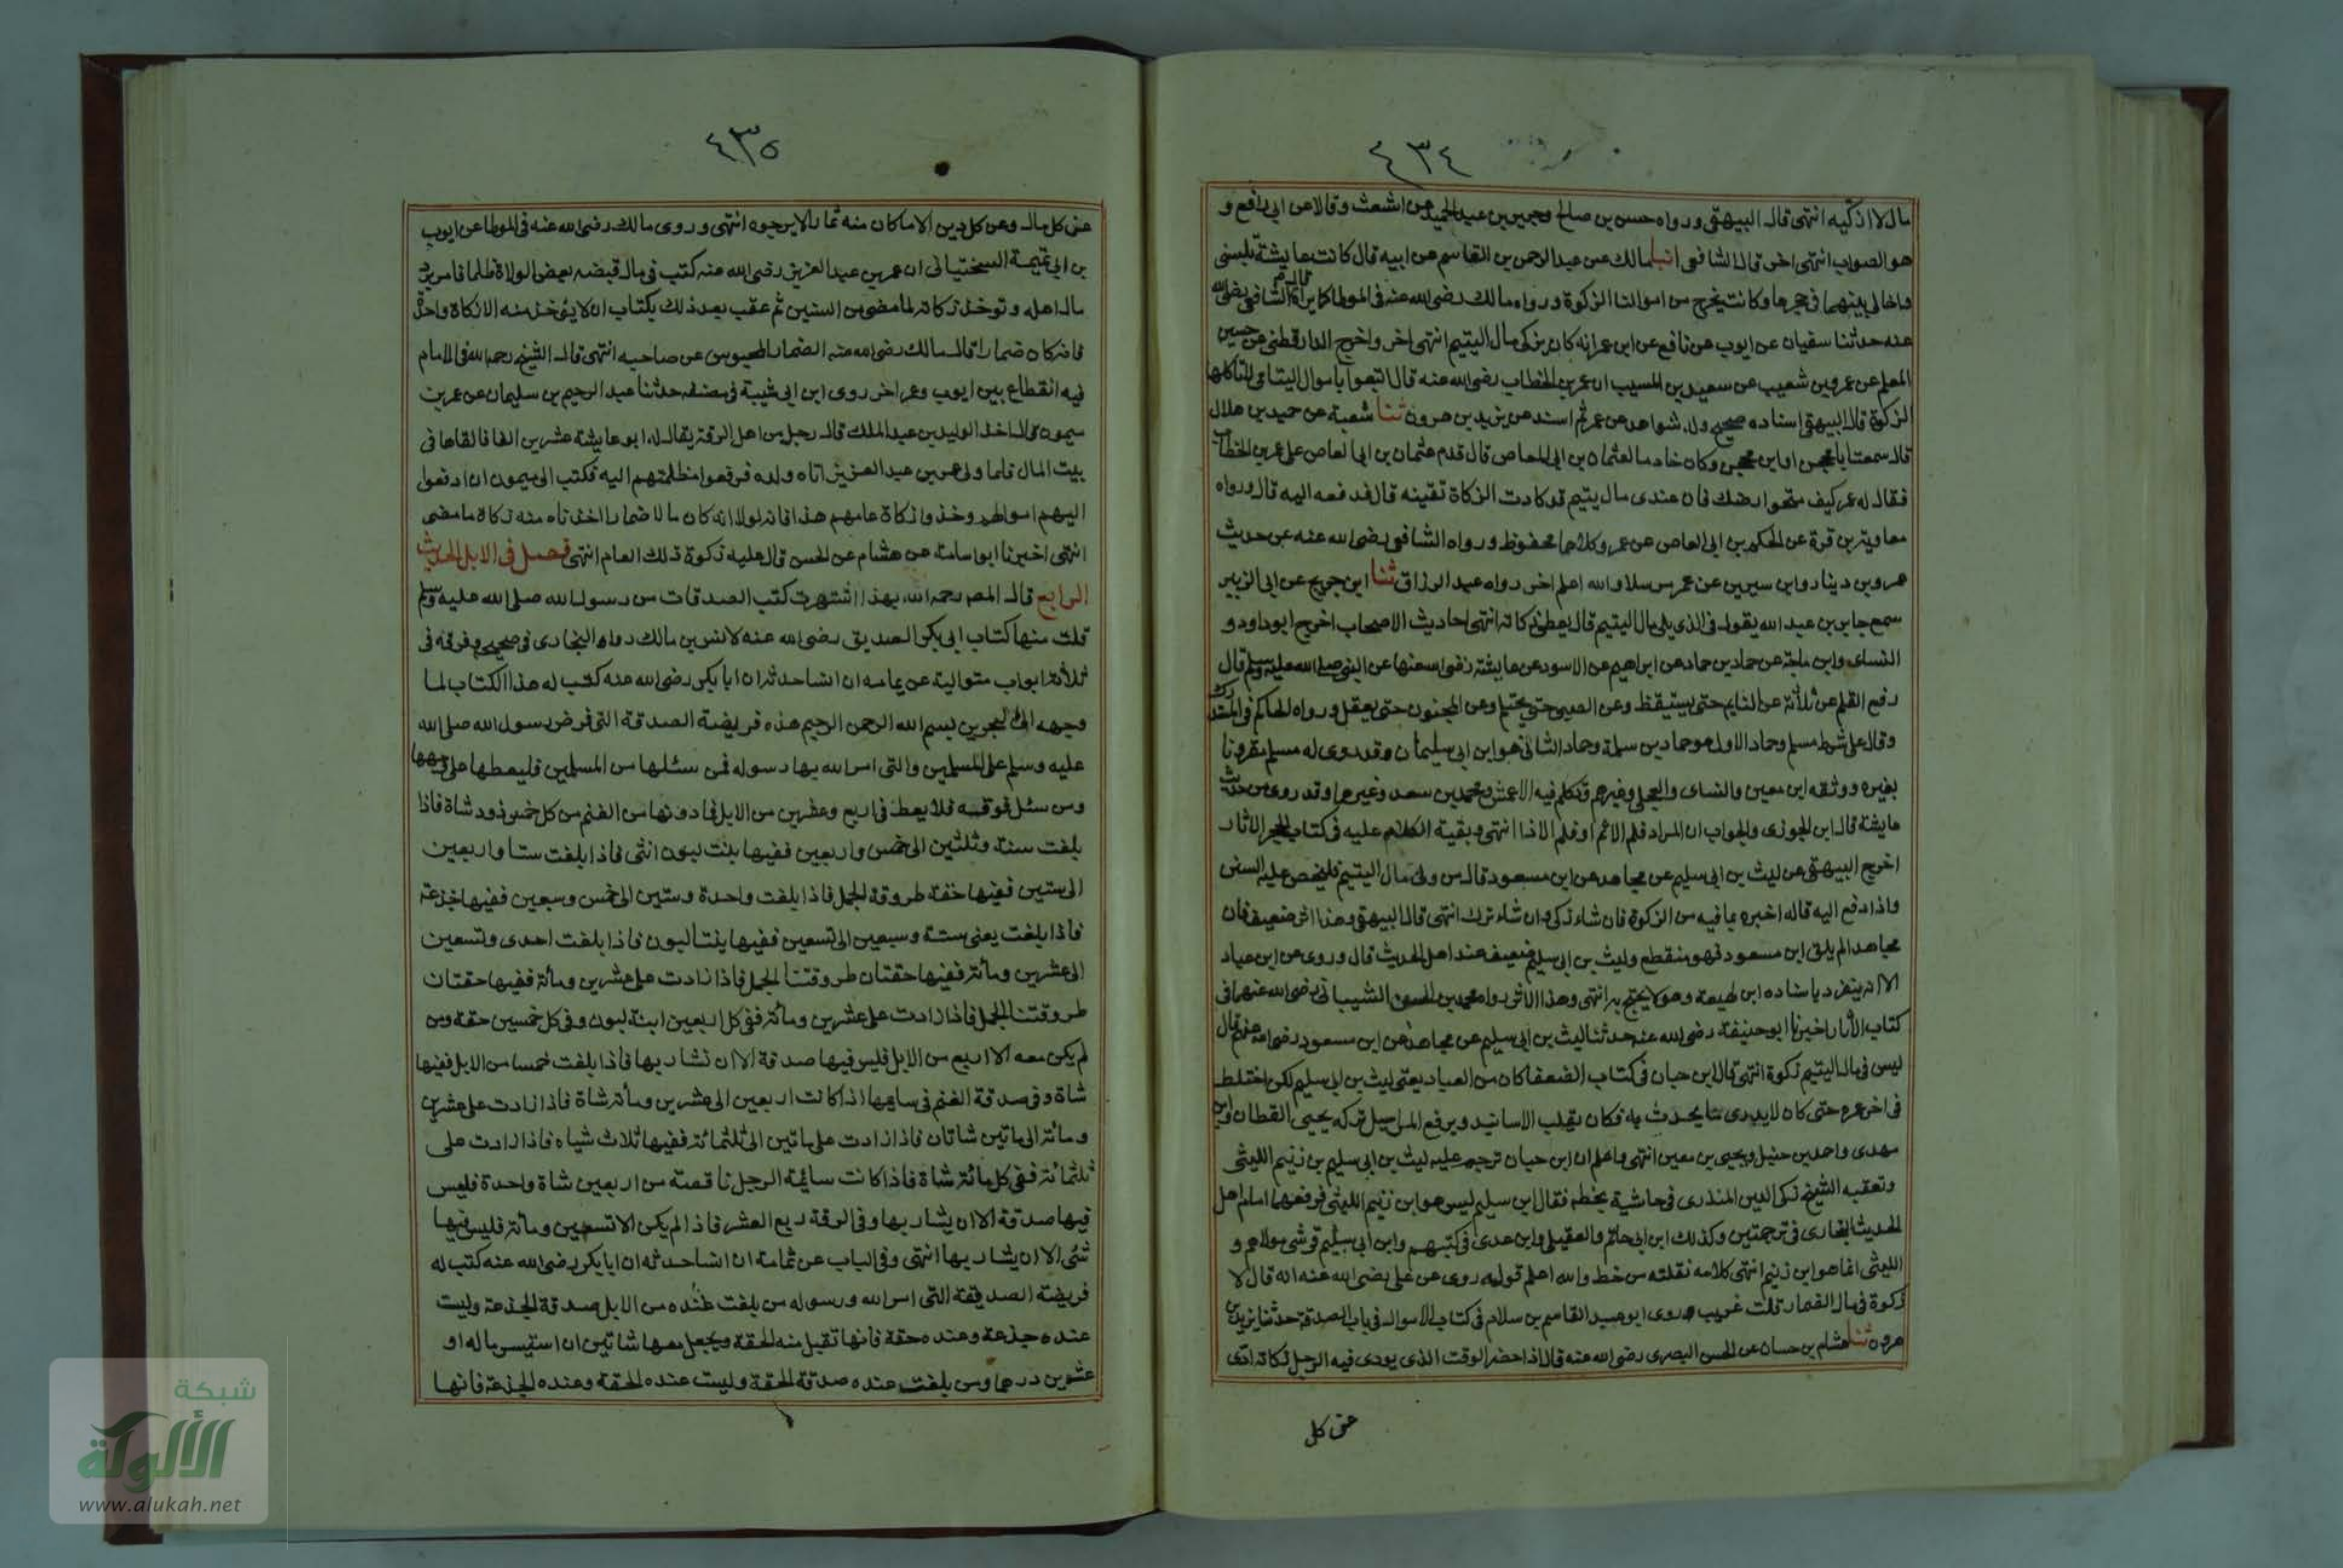 ٤٣٤
مال لا اذكيه انتهى قال البيهقى ورواه حسن بن صالح وجمير بن عبد الحميد عن اشعث وقالا عن ابى رافع و
هو الصواب انتهى اخر قال الشافعى انبا مالك عن عبد الرحمن بن القاسم عن ابيه قال كانت عايشة تلينى
واخا لى يتيما فى حجرها وكانت تخرج من اموالنا الزكوة ورواه مالك رضى الله عنه فى الموطا كما تراه قال الشافعى رضى الله
عنه حدثنا سفيان عن ايوب عن نافع عن ابن عمر انه كان يزكى مال اليتيم انتهى اخر واخرج الدارقطنى عن حسين
المعلم عن عمرو بن شعيب عن سعيد بن المسيب ان عمر بن الخطاب رضى الله عنه قال ابتغوا باموال اليتامى لا تاكلها
الزكوة قال البيهقى اسناده صحيح وله شواهد عن عمر ثم اسند عن يزيد بن هرون ثنا شعبة عن حميد بن هلال
قال سمعت ابا محجن او ابن محجن وكان خادما لعثمان بن ابى العاص قال قدم عثمان بن ابى العاص على عمر بن الخطاب
فقال له عمر كيف متجر ارضك فان عندى مال يتيم قد كادت الزكاة تفنيه قال فدفعه اليه قال ورواه
معاوية بن قرة عن الحكم بن ابى العاص عن عمر وكلاهما محفوظ ورواه الشافعى رضى الله عنه من حديث
عمرو بن دينار وابن سيرين عن عمر مرسلا والله اعلم اخر رواه عبد الرزاق ثنا ابن جريج عن ابى الزبير
سمع جابر بن عبد الله يقول فى الذى يلى مال اليتيم قال يعطى زكاته انتهى احاديث الاصحاب اخرج ابو داود و
النساى وابن ماجة عن حماد بن حماد عن ابراهيم عن الاسود عن عايشة رضى الله عنها عن النبى صلى الله عليه وسلم قال
رفع القلم عن ثلاثة عن النايم حتى يستيقظ وعن الصبى حتى يحتلم وعن المجنون حتى يعقل ورواه الحاكم فى المستدرك
وقال على شرط مسلم وحماد الاول هو حماد بن سلمة وحماد الثانى هو ابن ابى سليمان وقد روى له مسلم مقرونا
بغيره ووثقه ابن معين والنساى والعجلى وغيرهم وتكلم فيه الاعمش ومحمد بن سعد وغيرهما وقد روى من حديث
عايشة قال ابن الجوزى والجواب ان المراد قلم الاثم او قلم الاذا انتهى وبقية الكلام عليه فى كتاب الحجر الاثار
اخرج البيهقى عن ليث بن ابى سليم عن مجاهد عن ابن مسعود قال من ولى مال اليتيم فليحص عليه السنين
واذا دفع اليه قاله اخبره بما فيه من الزكوة فان شاء زكى وان شاء ترك انتهى قال البيهقى وهذا اثر ضعيف فان
مجاهد الم يلق ابن مسعود فهو منقطع وليث بن ابى سليم ضعيف عند اهل الحديث قال وروى عن ابن عباد
الا انه يتفرد باسناده ابن لهيعة وهو لا يحتج به انتهى وهذا الاثر رواه محمد بن الحسن الشيبانى رضى الله عنهما فى
كتاب الاثار اخبرنا ابو حنيفة رضى الله عنه حدثنا ليث بن ابى سليم عن مجاهد عن ابن مسعود رضى الله عنهم قال
ليس فى مال اليتيم زكوة انتهى قال ابن حبان فى كتاب الضعفا كان من العباد يعنى ليث بن ابى سليم لكن اختلط
فى اخر عمره حتى كان لا يدرى ما يحدث به فكان يقلب الاسانيد ويرفع المراسيل تركه يحيى القطان وابن
مهدى واحمد بن حنبل ويحيى بن معين انتهى واعلم ان ابن حبان ترجم عليه ليث بن ابى سليم بن زنيم الليثى
وتعقبه الشيخ زكى الدين المنذرى فى حاشية بخطه فقال ابن سليم ليس هو ابن زنيم الليثى فرقهما امام اهل
الحديث البخارى فى ترجمتين وكذلك ابن ابى حاتم والعقيلى وابن عدى فى كتبهم وابن ابى سليم قرشى مولاهم و
الليثى انما هو ابن زنيم انتهى كلامه نقلته من خطه والله اعلم قوله روى عن على رضى الله عنه انه قال لا
زكوة فى مال الضمار قلت غريب وروى ابو عبيد القاسم بن سلام فى كتاب الاموال فى باب الصدقة حدثنا يزيد بن
هرون ثنا هشام بن حسان عن الحسن البصرى رضى الله عنه قال اذا حضر الوقت الذى يودى فيه الرجل زكاته ادى
عن كل
٤٣٥
عن كل مال وعن كل دين الا ما كان منه ضمارا لا يرجوه انتهى وروى مالك رضى الله عنه فى الموطا عن ايوب
بن ابى تميمة السختيانى ان عمر بن عبد العزيز رضى الله عنه كتب فى مال قبضه بعض الولاة ظلما فامر برد
مال اهله وتوخذ زكاته لما مضى من السنين ثم عقب بعد ذلك بكتاب ان لا يؤخذ منه الا زكاة واحدة
فانه كان ضمارا قال مالك رضى الله عنه الضمار المحبوس عن صاحبه انتهى قال الشيخ رحمه الله فى الامام
فيه انقطاع بين ايوب وعمر اخر روى ابن ابى شيبة فى مصنفه حدثنا عبد الرحيم بن سليمان عن عمرو بن
ميمون قال اخذ الوليد بن عبد الملك قال رجل من اهل الرقة يقال له ابو عايشة عشرين الفا فالقاها فى
بيت المال فلما ولى عمر بن عبد العزيز اتاه ولده فرفعوا مظلمتهم اليه فكتب الى ميمون ان ادفعوا
اليهم اموالهم وخذوا زكاة عامهم هذا فانه لولا انه كان مالا ضمارا اخذناه منه زكاة ما مضى
انتهى اخبرنا ابو اسامة عن هشام عن الحسن قال عليه زكوة ذلك العام انتهى فصل فى الابل الحديث
الرابع قال المصر رحمه الله بهذا اشتهرت كتب الصدقات من رسول الله صلى الله عليه وسلم
قلت منها كتاب ابى بكر الصديق رضى الله عنه لانس بن مالك رواه البخارى فى صحيحه وفرقه فى
ثلاثة ابواب متوالية عن يمامه ان انسا حدثه ان ابا بكر رضى الله عنه كتب له هذا الكتاب لما
وجهه الى البحرين بسم الله الرحمن الرحيم هذه فريضة الصدقة التى فرض رسول الله صلى الله
عليه وسلم على المسلمين والتى امر الله بها رسوله فمن سئلها من المسلمين فليعطها على وجهها
ومن سئل فوقه فلا يعط فى اربع وعشرين من الابل فما دونها من الغنم من كل خمس ذود شاة فاذا
بلغت ستة وثلثين الى خمس واربعين ففيها بنت لبون انثى فاذا بلغت ستا واربعين
الى ستين ففيها حقة طروقة الجمل فاذا بلغت واحدة وستين الى خمس وسبعين ففيها جذعة
فاذا بلغت يعنى ستة وسبعين الى تسعين ففيها بنتا لبون فاذا بلغت احدى وتسعين
الى عشرين ومائة ففيها حقتان طروقتا الجمل فاذا زادت على عشرين ومائة ففيها حقتان
طروقتا الجمل فاذا زادت على عشرين ومائة ففى كل اربعين ابنة لبون وفى كل خمسين حقة ومن
لم يكن معه الا اربع من الابل فليس فيها صدقة الا ان نشا ربها فاذا بلغت خمسا من الابل ففيها
شاة وفى صدقة الغنم فى سايمها اذا كانت اربعين الى عشرين ومائة شاة فاذا زادت على عشرين
ومائة الى ماتين شاتان فاذا زادت على ماتين الى ثلثمائة ففيها ثلاث شياه فاذا زادت على
ثلثمائة ففى كل مائة شاة فاذا كانت سايمة الرجل ناقصة من اربعين شاة واحدة فليس
فيها صدقة الا ان يشا ربها وفى الرقة ربع العشر فاذا لم يكن الا تسعين ومائة فليس فيها
شئ الا ان يشا ربها انتهى وفى الباب عن ثمامة ان انسا حدثه ان ابا بكر رضى الله عنه كتب له
فريضة الصديقة التى امر الله ورسوله من بلغت عنده من الابل صدقة الجذعة وليست
عنده جذعة وعنده حقة فانها تقبل منه الحقة ويجعل معها شاتين ان استيسر ما له او
عشرين درهما ومن بلغت عنده صدقة الحقة وليست عنده الحقة وعنده الجذعة فانها
شبكة
الألوكة
www.alukah.net